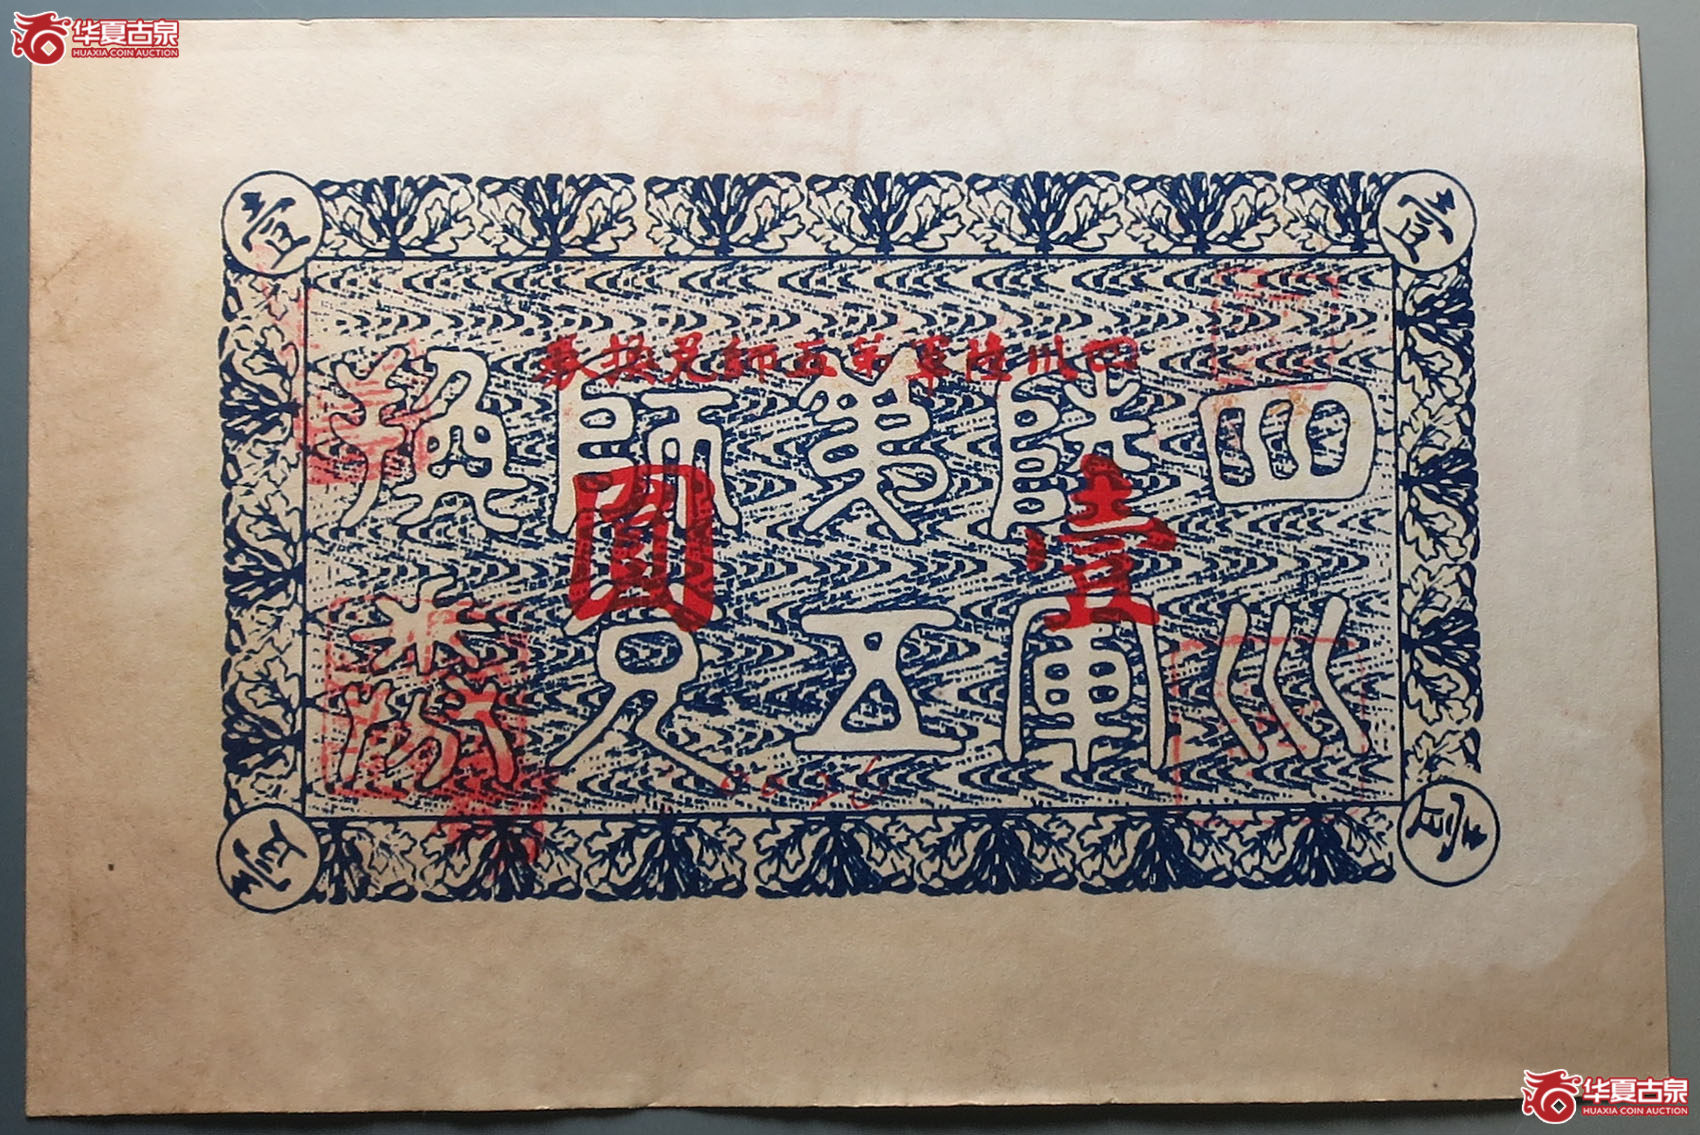 华夏古泉
HUAXIA COIN AUCTION
壹
壹
四川陸軍第五師兌換券
四川陸軍第五師兌換券
壹圓
壹
壹
华夏古泉
HUAXIA COIN AUCTION